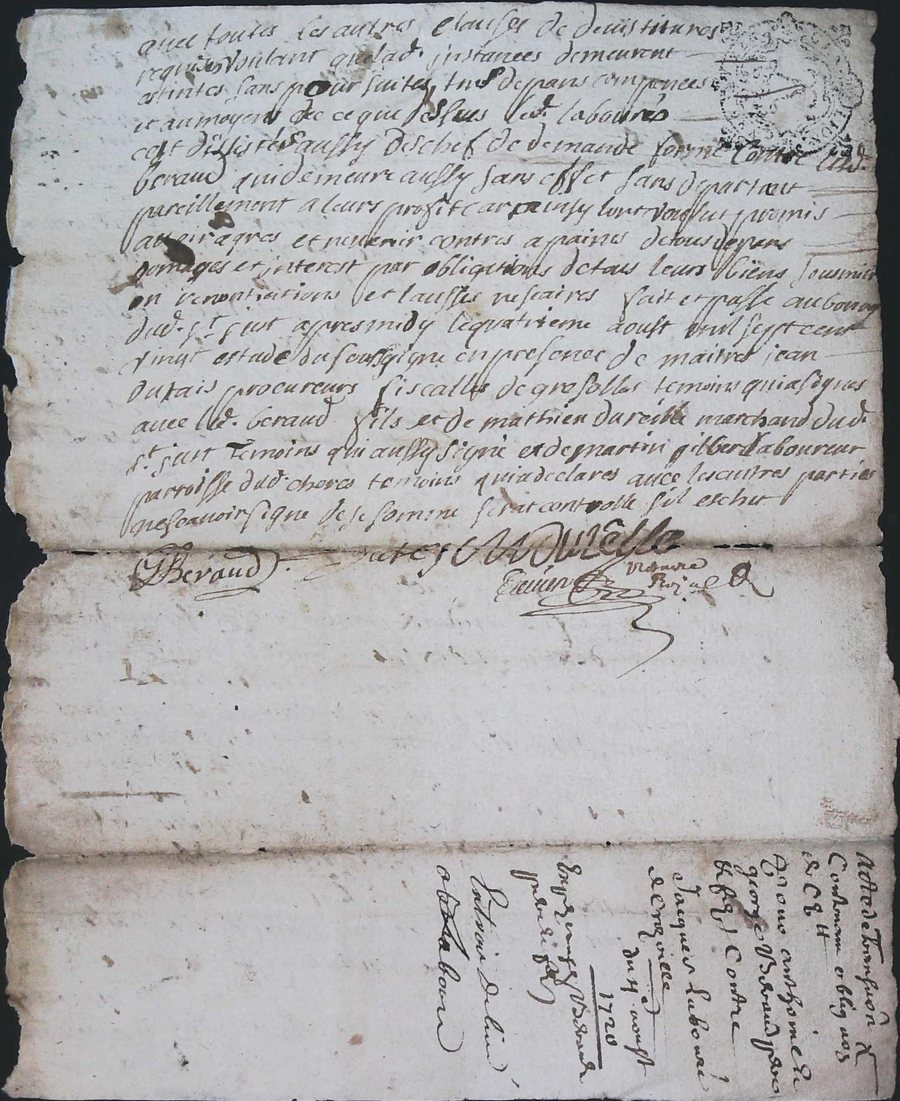 avec toutes les autres clauses de devistitures
requises voulant que lad. instances demeurent
estintes sans poursuittes tous depans compenses
et au moyens de ce que dessus led. labourés
cest dissistés aussy du chef de demande formé contre led.
beraud qui demeure aussy sans effet sans depart aut
pareillement a leurs profit car ainsy lont voulsut promis
avoir agres et contres a paines de tous depans
domages et interest par obligations de tous leurs biens soumis
on renontiations et clauses fait et passé au bourg
dud. st. just apres midy le quatrieme aoust mil sept cent
vingt estude du sousigne en presence de maitres jean
dutais procureurs fiscalles de gresolles temoins qui a signes
avec led. beraud fils et de mathieu dureille marchand dud.
st. just temoins qui aussy signé et de martin gilbert laboureur
parroisse dud. cheres temoins qui a declares avec les autres parties
ne scavoir signe de ce sommé serat controlle sil eschut
JBéraud
M Durelle
notaire
Royal
Acte de
Contenant obligaõn
de
pour anthoine et
george Beraud pere
et fils Contre
Jacques Labouré
du 4 aoust
1720
Beraud
pere et fils
Labouré